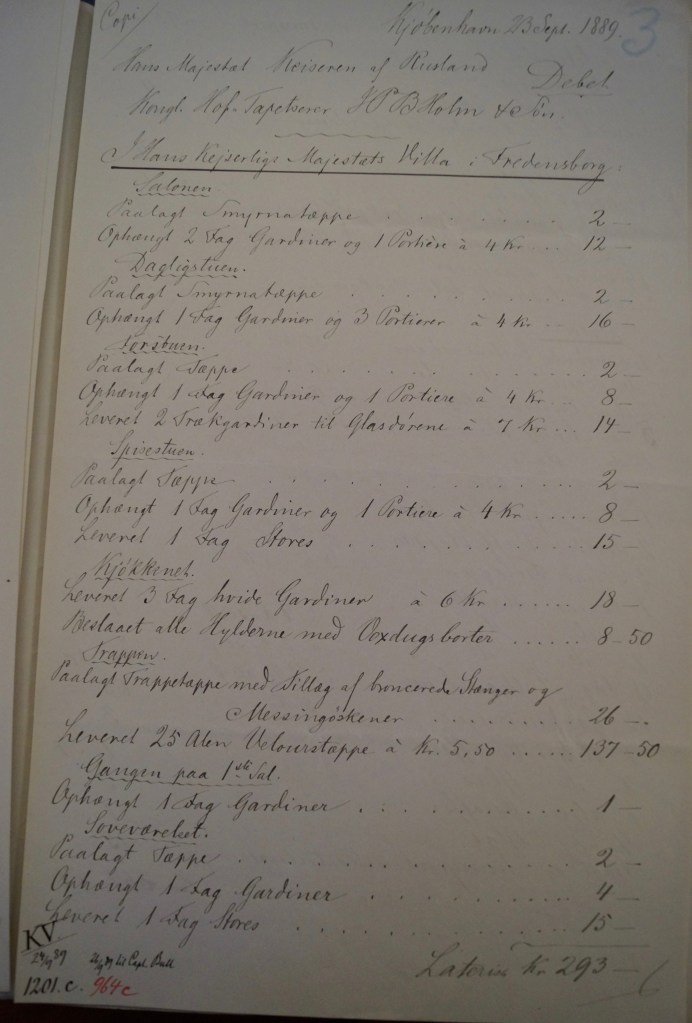 Copi
Kjøbenhavn 23 Sept. 1889.
3
Hans Majestæt Keiseren af Rusland
Debet.
Kongl. Hof-Tapetserer I P B Holm & Søn.
I Hans Kejserlige Majestæts Villa i Fredensborg:
Salonen.
Paalagt Smyrnatæppe . . . . . . . . 2 —
Ophængt 2 Fag Gardiner og 1 Portière à 4 Kr . . . 12 —
Dagligstuen.
Paalagt Smyrnatæppe . . . . . . . . 2 —
Ophængt 1 Fag Gardiner og 3 Portierer à 4 Kr . . . 16 —
Forstuen.
Paalagt Tæppe . . . . . . . . 2 —
Ophængt 1 Fag Gardiner og 1 Portiere à 4 Kr . . . 8 —
Leveret 2 Trækgardiner til Glasdørene à 7 Kr . . . 14 —
Spisestuen.
Paalagt Tæppe . . . . . . . . 2 —
Ophængt 1 Fag Gardiner og 1 Portiere à 4 Kr . . . . . 8 —
Leveret 1 Fag Stores . . . . . . . . 15 —
Kjøkkenet.
Leveret 3 Fag hvide Gardiner à 6 Kr . . . . . . 18 —
Beslaaet alle Hylderne med Voxdugsborter . . . . . . 8 - 50
Trappen.
Paalagt Trappetæppe med Tillæg af broncerede Stænger og
Messingøskener . . . . . . . . 26 —
Leveret 25 Alen Velourstæppe à Kr. 5,50 . . . . . 137 - 50
Gangen paa 1ste Sal.
Ophængt 1 Fag Gardiner . . . . . . . . 1 —
Soveværelset.
Paalagt Tæppe . . . . . . . . 2 —
Ophængt 1 Fag Gardiner . . . . . . . . 4 —
Leveret 1 Fag Stores . . . . . . . . 15 —
KV
Lateris Kr 293 —
til Capt. Bull
1201.c. 964c